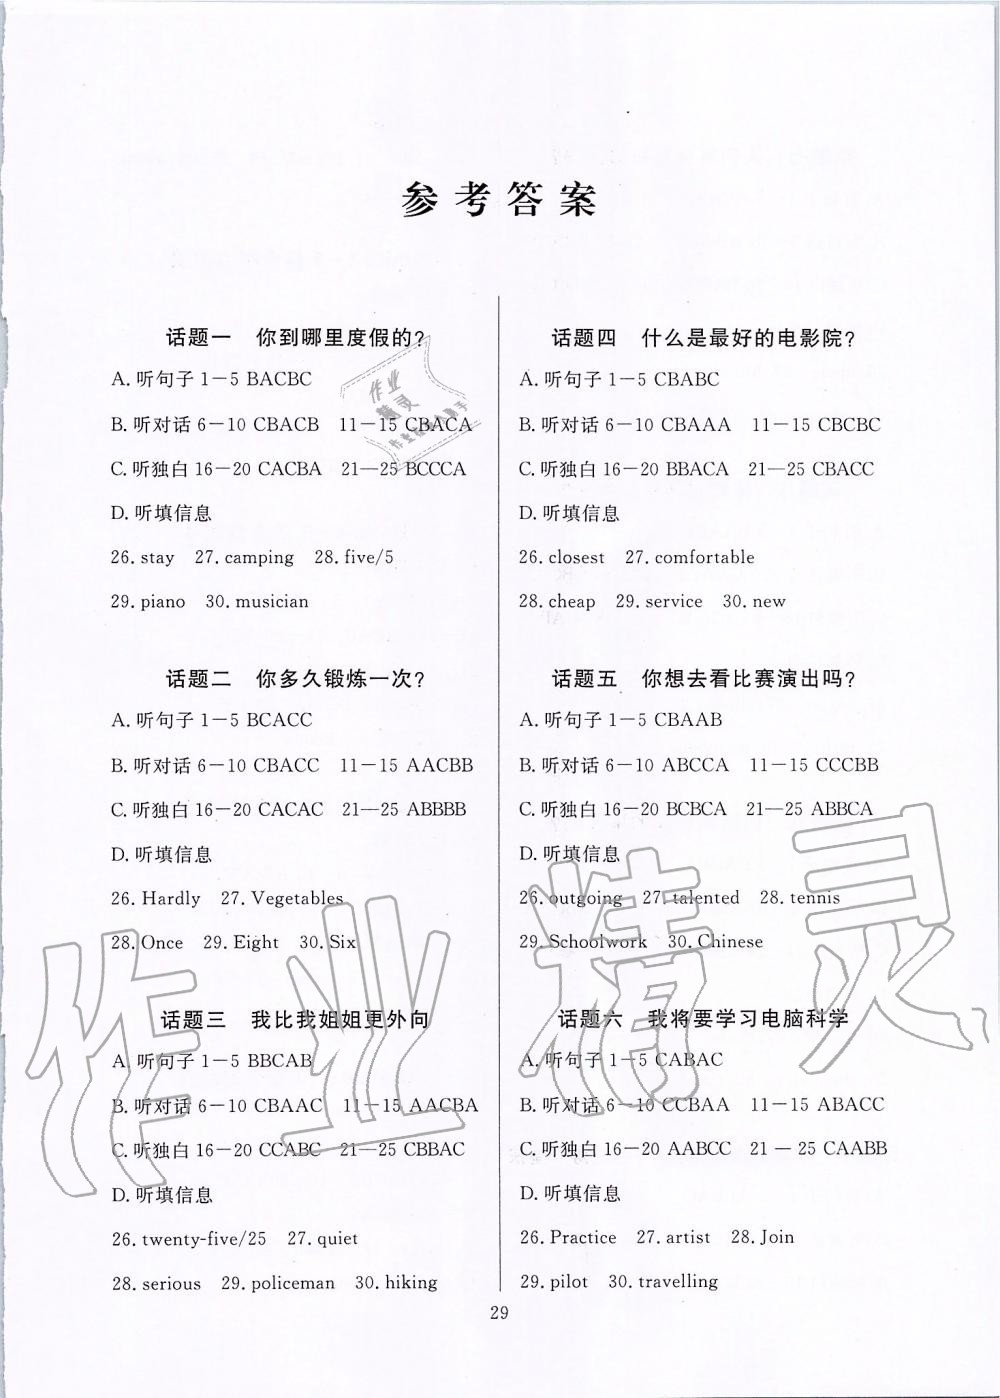 参考答案
话题一 你到哪里度假的?
A. 听句子 1-5 BACBC
B. 听对话 6-10 CBACB 11-15 CBACA
C. 听独白 16-20 CACBA 21-25 BCCCA
D. 听填信息
26. stay 27. camping 28. five/5
29. piano 30. musician
话题二 你多久锻炼一次?
A. 听句子 1-5 BCACC
B. 听对话 6-10 CBACC 11-15 AACBB
C. 听独白 16-20 CACAC 21-25 ABBBB
D. 听填信息
26. Hardly 27. Vegetables
28. Once 29. Eight 30. Six
话题三 我比我姐姐更外向
A. 听句子 1-5 BBCAB
B. 听对话 6-10 CBAAC 11-15 AACBA
C. 听独白 16-20 CCABC 21-25 CBBAC
D. 听填信息
26. twenty-five/25 27. quiet
28. serious 29. policeman 30. hiking
话题四 什么是最好的电影院?
A. 听句子 1-5 CBABC
B. 听对话 6-10 CBAAA 11-15 CBCBC
C. 听独白 16-20 BBACA 21-25 CBACC
D. 听填信息
26. closest 27. comfortable
28. cheap 29. service 30. new
话题五 你想去看比赛演出吗?
A. 听句子 1-5 CBAAB
B. 听对话 6-10 ABCCA 11-15 CCCBB
C. 听独白 16-20 BCBCA 21-25 ABBCA
D. 听填信息
26. outgoing 27. talented 28. tennis
29. Schoolwork 30. Chinese
话题六 我将要学习电脑科学
A. 听句子 1-5 CABAC
B. 听对话 6-10 CCBAA 11-15 ABACC
C. 听独白 16-20 AABCC 21-25 CAABB
D. 听填信息
26. Practice 27. artist 28. Join
29. pilot 30. travelling
29
作业精灵
作业
精灵